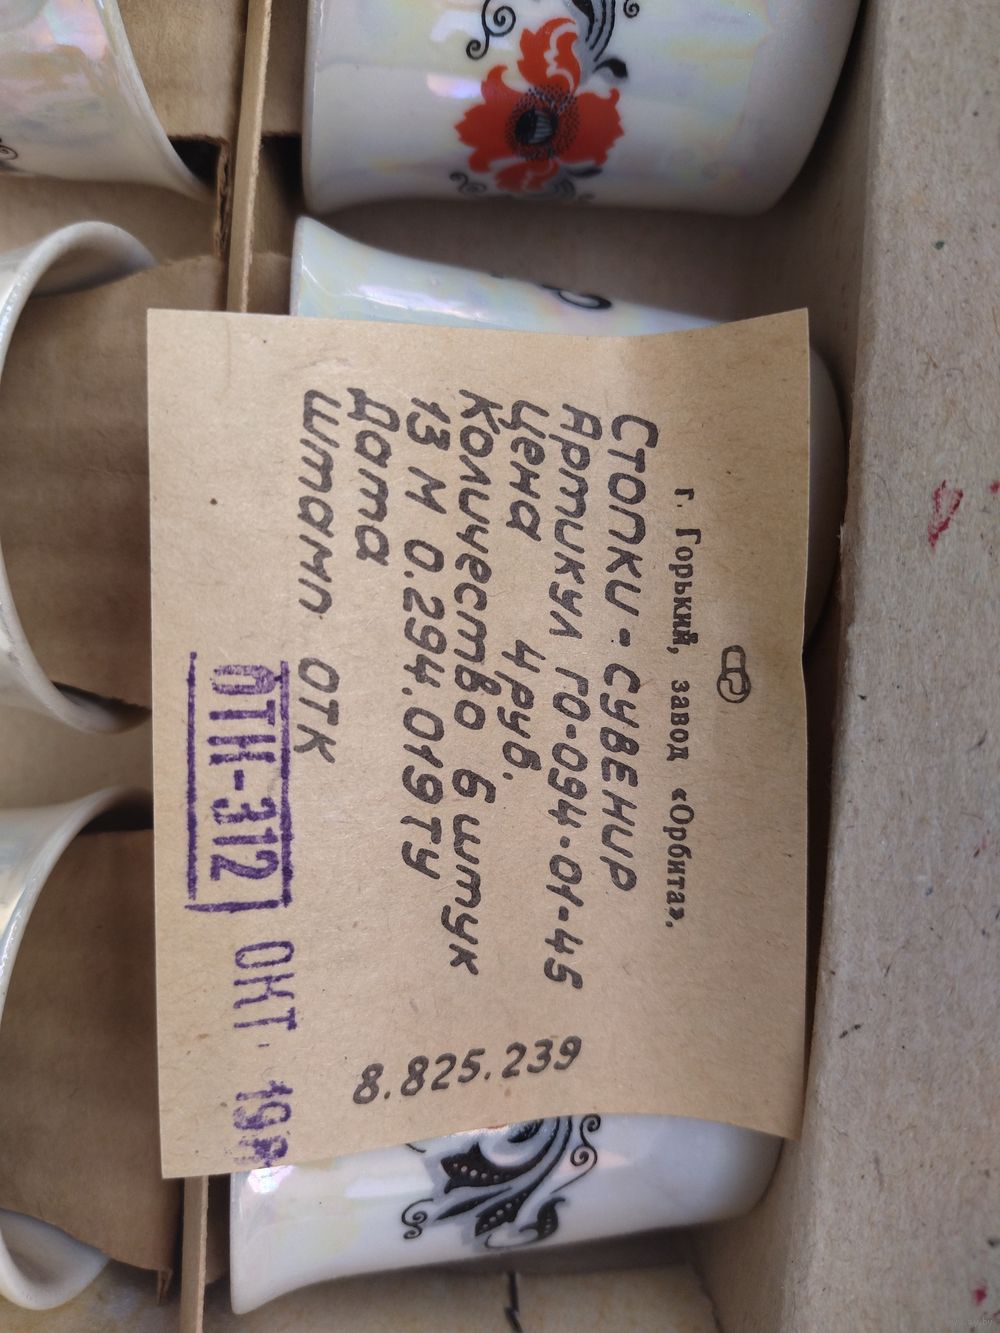 г. Горький, завод «Орбита».
Стопки-сувенир
Артикул ГО-094-01-45
Цена 4 руб.
Количество 6 штук
13 М 0.294.019 ТУ
Дата
Штамп ОТК
ОТК-312 ОКТ. 19
8.825.239